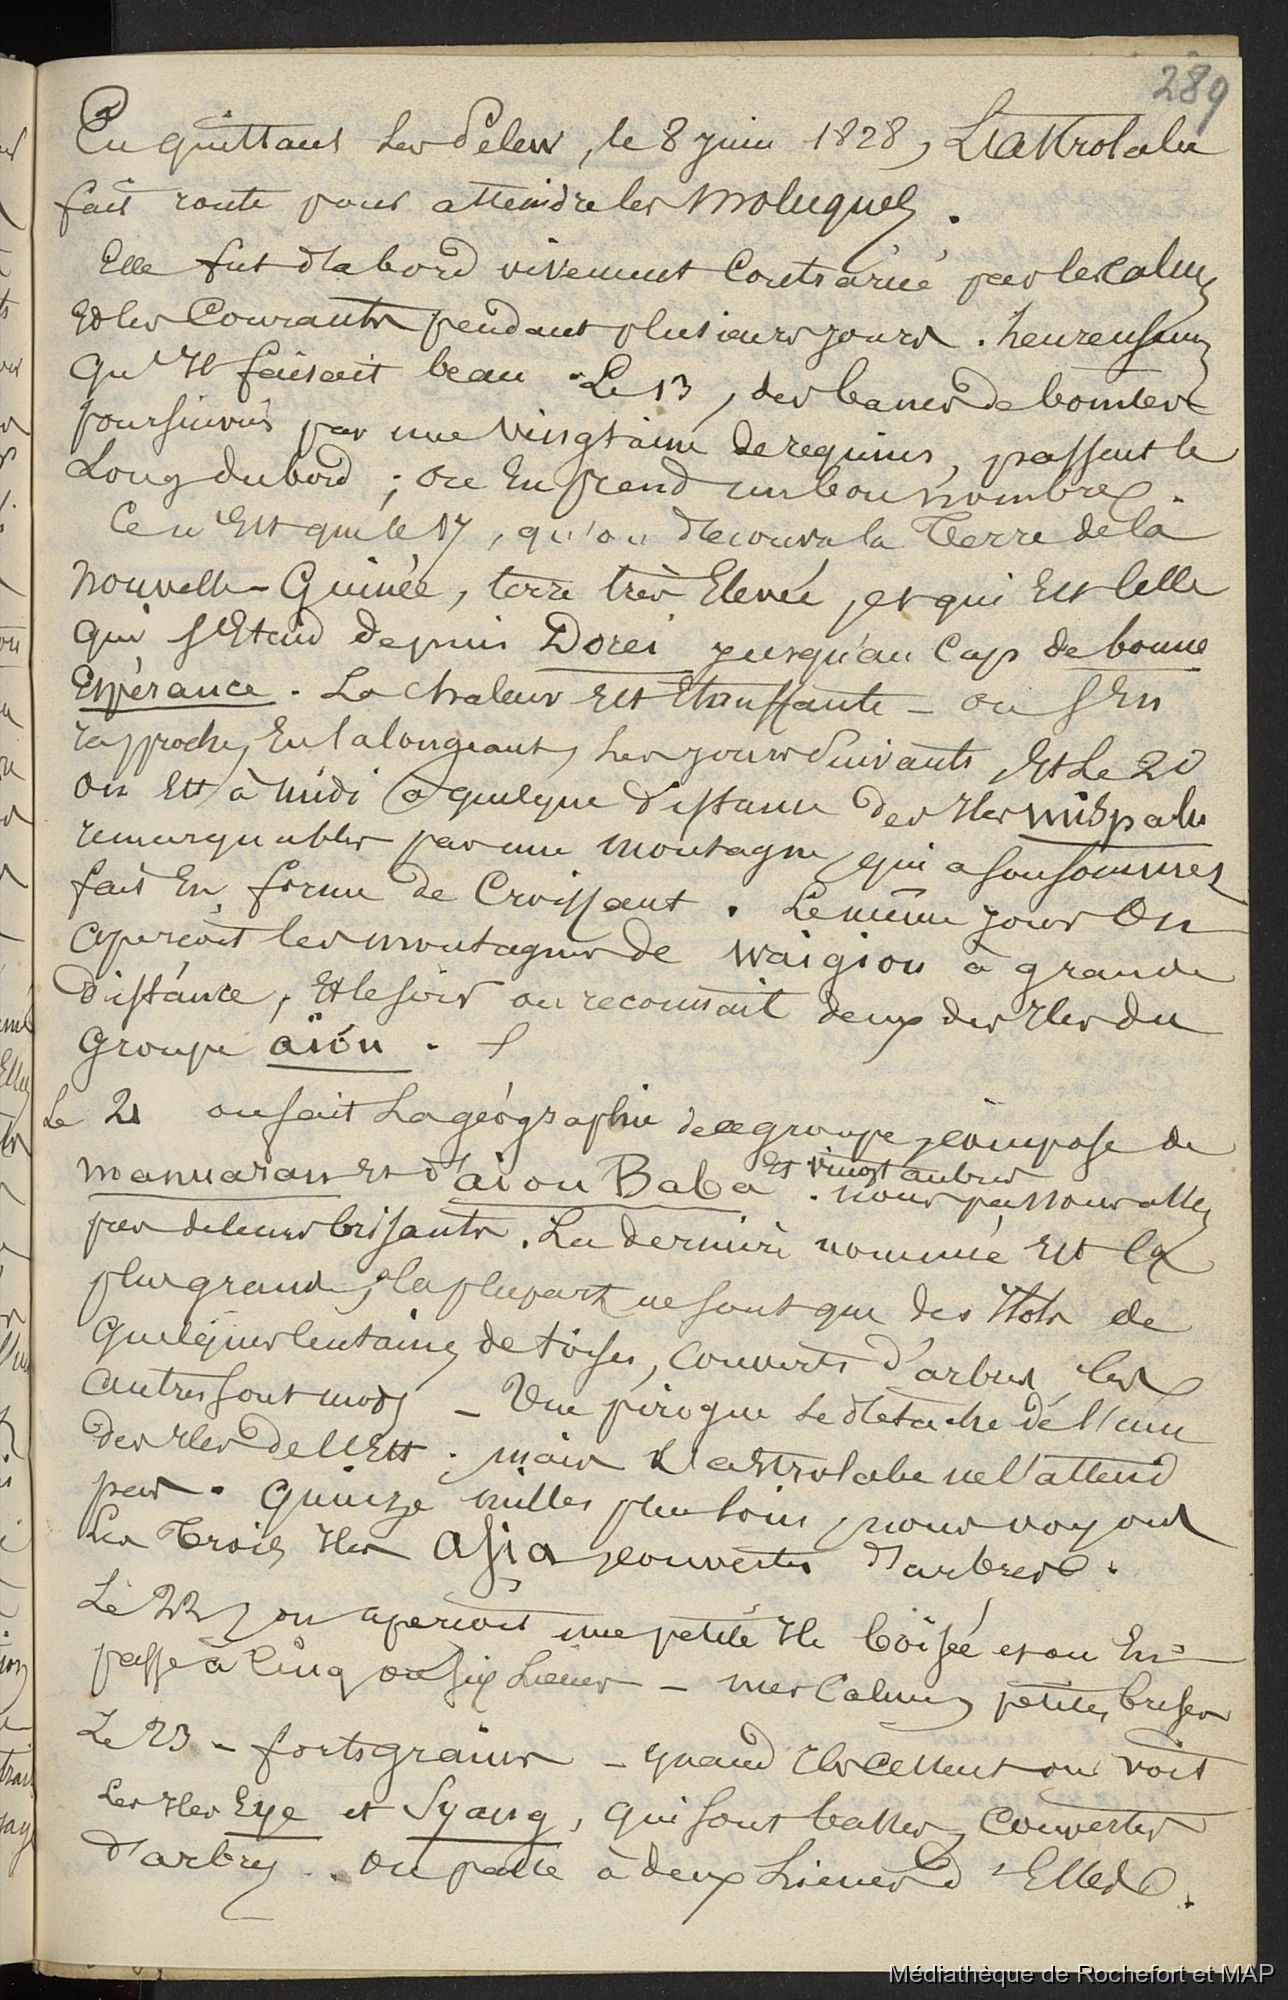 289
En quittant les Pelew, le 8 juin 1828, L'astrolabe
fait route pour atteindre les Moluques.
Elle fut d'abord vivement contrariée par les calmes
et les Courants pendant plusieurs jours. heureusement
qu'Il faisait beau. Le 13, des bancs de bonites
poursuivis par une vingtaine de requins, passent le
Long du bord ; on En prend un bon nombre.
Ce n'Est que le 17, qu'on découvre la Terre de la
Nouvelle-Guinée, terre très Elevée, et qui Est Celle
qui s'Etend depuis Dorei jusqu'au Cap de bonne
Espérance. La chaleur Est Etouffante — on s'En
rapproche, En la longeant, les jours suivants, Et Le 20
on Est à midi à quelque distance des Iles Mispalu
remarquables par une montagne, qui a son sommet
fait En forme de Croissant. Le même jour On
aperçoit les montagnes de Waigiou à grande
distance, Et le soir on reconnait deux des Iles du
Groupe aïou.
Le 21 on fait La géographie de ce groupe, composé de
Manuaran Et d'aiou Baba Et vingt autres. nous passons assez
près de leurs brisants. La dernière nommée Est la
plus grande, la plupart ne sont que des Ilots de
quelques Centaines de toises, couverts d'arbres, les
autres sont nus — Une pirogue se détache de l'une
des Iles de l'Est ; mais L'astrolabe ne l'attend
pas. Quinze milles plus loin, nous voyons
Les Trois Iles Asia, couvertes d'arbres.
Le 22, on aperçoit une petite Ile boisée et on En
passe à Cinq ou six Lieues — mer Calme, petites brises
Le 23 — forts grains — quand Ils cessent on voit
Les Iles Eye et Syang, qui sont basses, couvertes
d'arbres. on passe à deux Lieues d'Elles.
Médiathèque de Rochefort et MAP